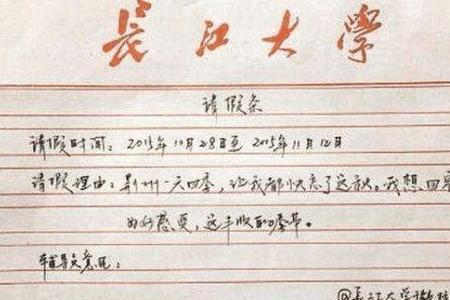 長江大学
请假条
请假时间: 2015年10月28日至 2015年11月12日
请假理由: 荆州一天四季,让我都快忘了这秋。我想回
好感受,这丰收的季节。
辅导员意见:
@长江大学